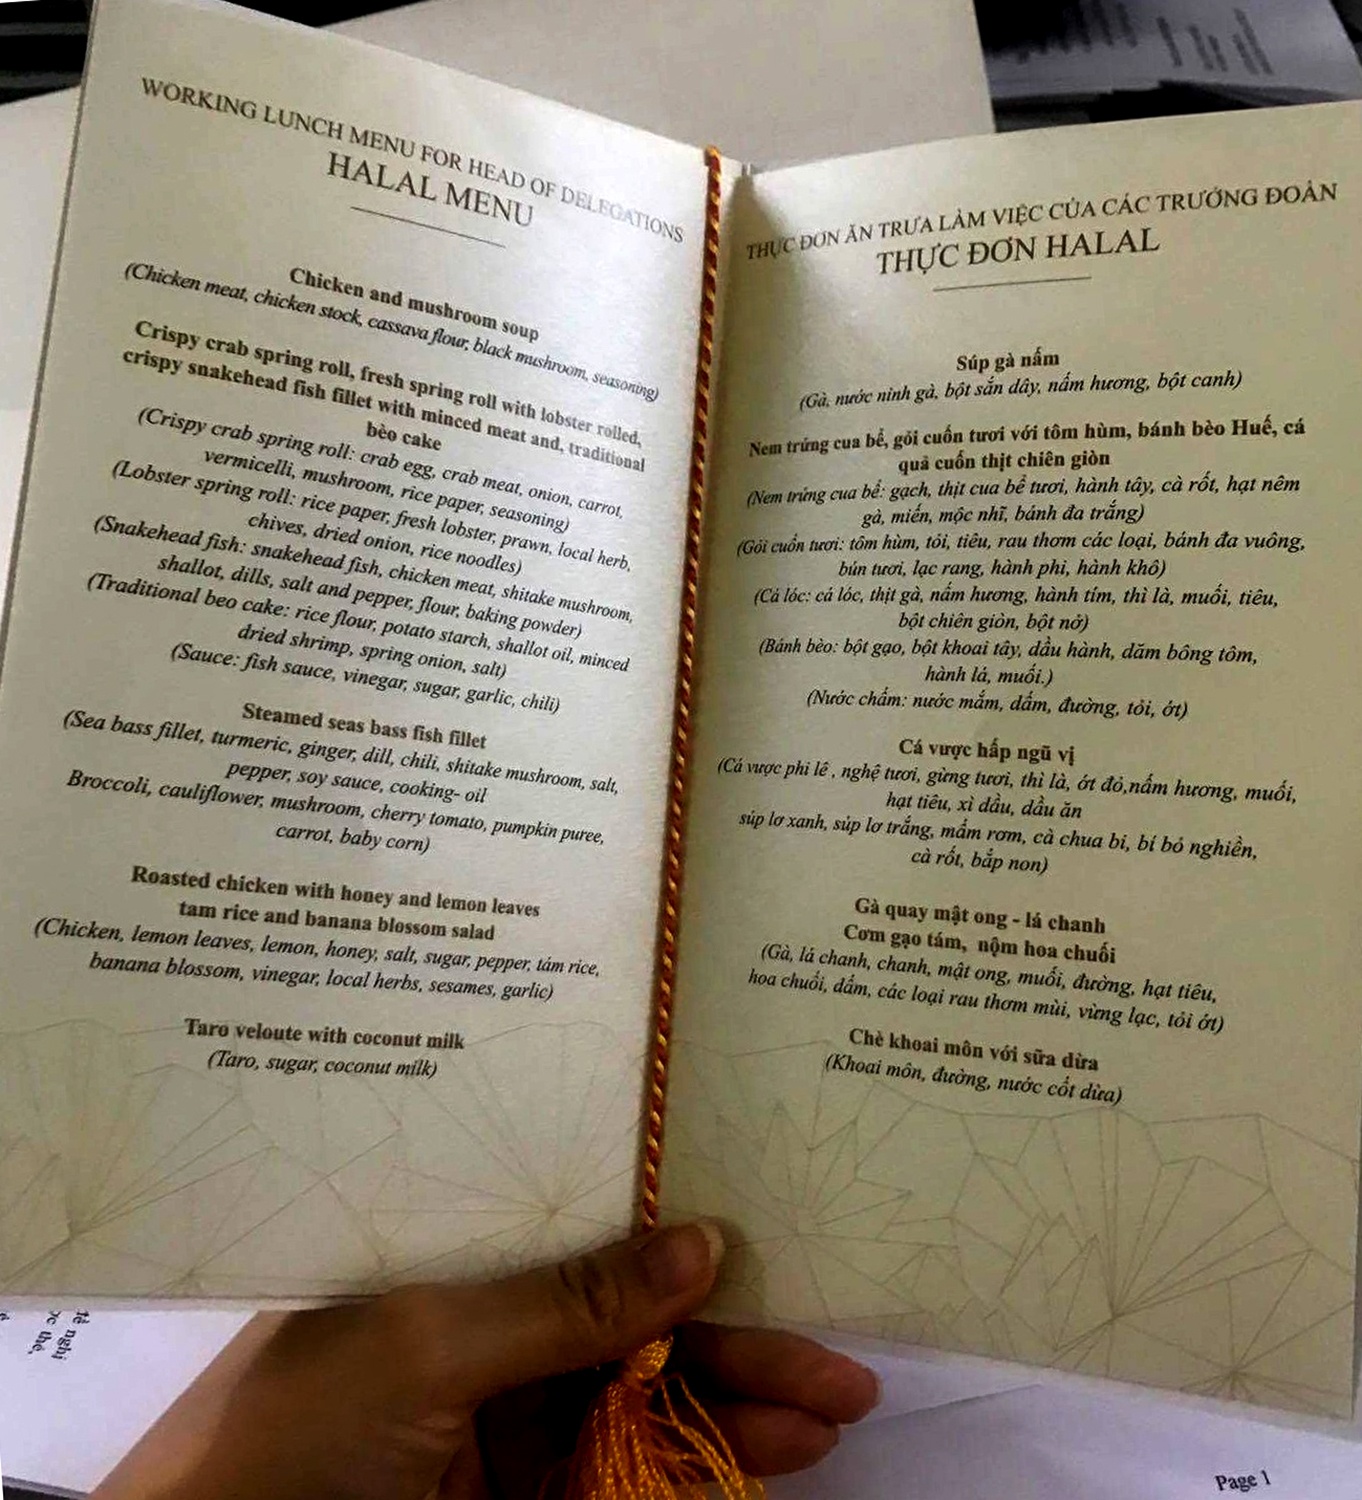 WORKING LUNCH MENU FOR HEAD OF DELEGATIONS
HALAL MENU
Chicken and mushroom soup
(Chicken meat, chicken stock, cassava flour, black mushroom, seasoning)
Crispy crab spring roll, fresh spring roll with lobster rolled,
crispy snakehead fish fillet with minced meat and, traditional
bèo cake
(Crispy crab spring roll: crab egg, crab meat, onion, carrot,
vermicelli, mushroom, rice paper, seasoning)
(Lobster spring roll: rice paper, fresh lobster, prawn, local herb,
chives, dried onion, rice noodles)
(Snakehead fish: snakehead fish, chicken meat, shitake mushroom,
shallot, dills, salt and pepper, flour, baking powder)
(Traditional beo cake: rice flour, potato starch, shallot oil, minced
dried shrimp, spring onion, salt)
(Sauce: fish sauce, vinegar, sugar, garlic, chili)
Steamed seas bass fish fillet
(Sea bass fillet, turmeric, ginger, dill, chili, shitake mushroom, salt,
pepper, soy sauce, cooking- oil
Broccoli, cauliflower, mushroom, cherry tomato, pumpkin puree,
carrot, baby corn)
Roasted chicken with honey and lemon leaves
tam rice and banana blossom salad
(Chicken, lemon leaves, lemon, honey, salt, sugar, pepper, tám rice,
banana blossom, vinegar, local herbs, sesames, garlic)
Taro veloute with coconut milk
(Taro, sugar, coconut milk)
THỰC ĐƠN ĂN TRƯA LÀM VIỆC CỦA CÁC TRƯỞNG ĐOÀN
THỰC ĐƠN HALAL
Súp gà nấm
(Gà, nước ninh gà, bột sắn dây, nấm hương, bột canh)
Nem trứng cua bể, gỏi cuốn tươi với tôm hùm, bánh bèo Huế, cá
quả cuốn thịt chiên giòn
(Nem trứng cua bể: gạch, thịt cua bể tươi, hành tây, cà rốt, hạt nêm
gà, miến, mộc nhĩ, bánh đa trắng)
(Gỏi cuốn tươi: tôm hùm, tỏi, tiêu, rau thơm các loại, bánh đa vuông,
bún tươi, lạc rang, hành phi, hành khô)
(Cá lóc: cá lóc, thịt gà, nấm hương, hành tím, thì là, muối, tiêu,
bột chiên giòn, bột nở)
(Bánh bèo: bột gạo, bột khoai tây, dầu hành, dăm bông tôm,
hành lá, muối.)
(Nước chấm: nước mắm, dấm, đường, tỏi, ớt)
Cá vược hấp ngũ vị
(Cá vược phi lê , nghệ tươi, gừng tươi, thì là, ớt đỏ,nấm hương, muối,
hạt tiêu, xì dầu, dầu ăn
súp lơ xanh, súp lơ trắng, mấm rơm, cà chua bi, bí bỏ nghiền,
cà rốt, bắp non)
Gà quay mật ong - lá chanh
Cơm gạo tám, nộm hoa chuối
(Gà, lá chanh, chanh, mật ong, muối, đường, hạt tiêu,
hoa chuối, dấm, các loại rau thơm mùi, vừng lạc, tỏi ớt)
Chè khoai môn với sữa dừa
(Khoai môn, đường, nước cốt dừa)
nghị
thẻ,
Page 1